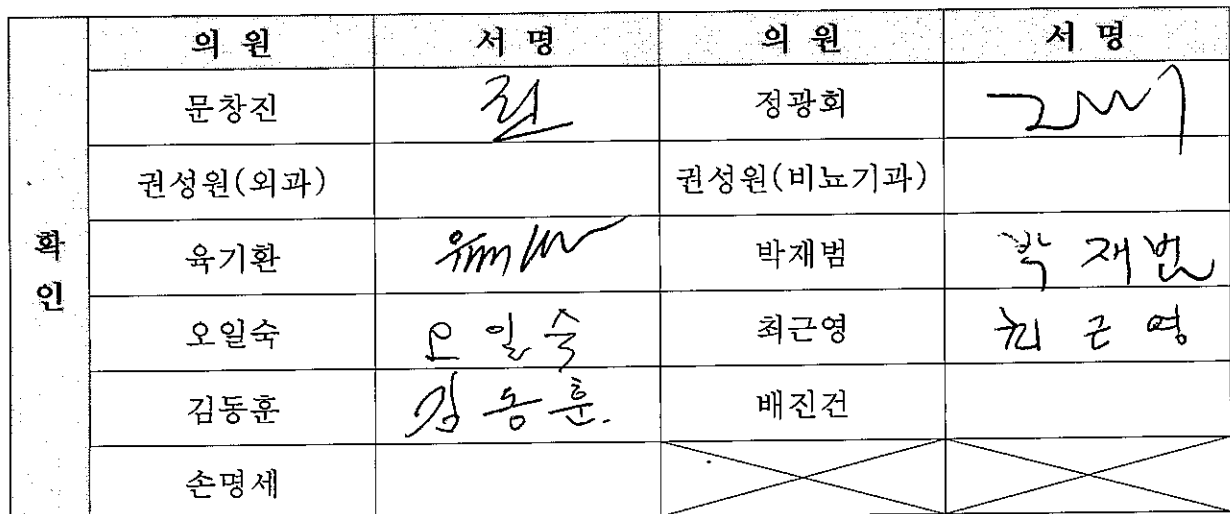 의 원 서 명 의 원 서 명
문창진 정광회
권성원(외과) 권성원(비뇨기과)
확 인
육기환 박재범 박 재 범
오일숙 오 일 숙 최근영 최 근 영
김동훈 김 동 훈. 배진건
손명세